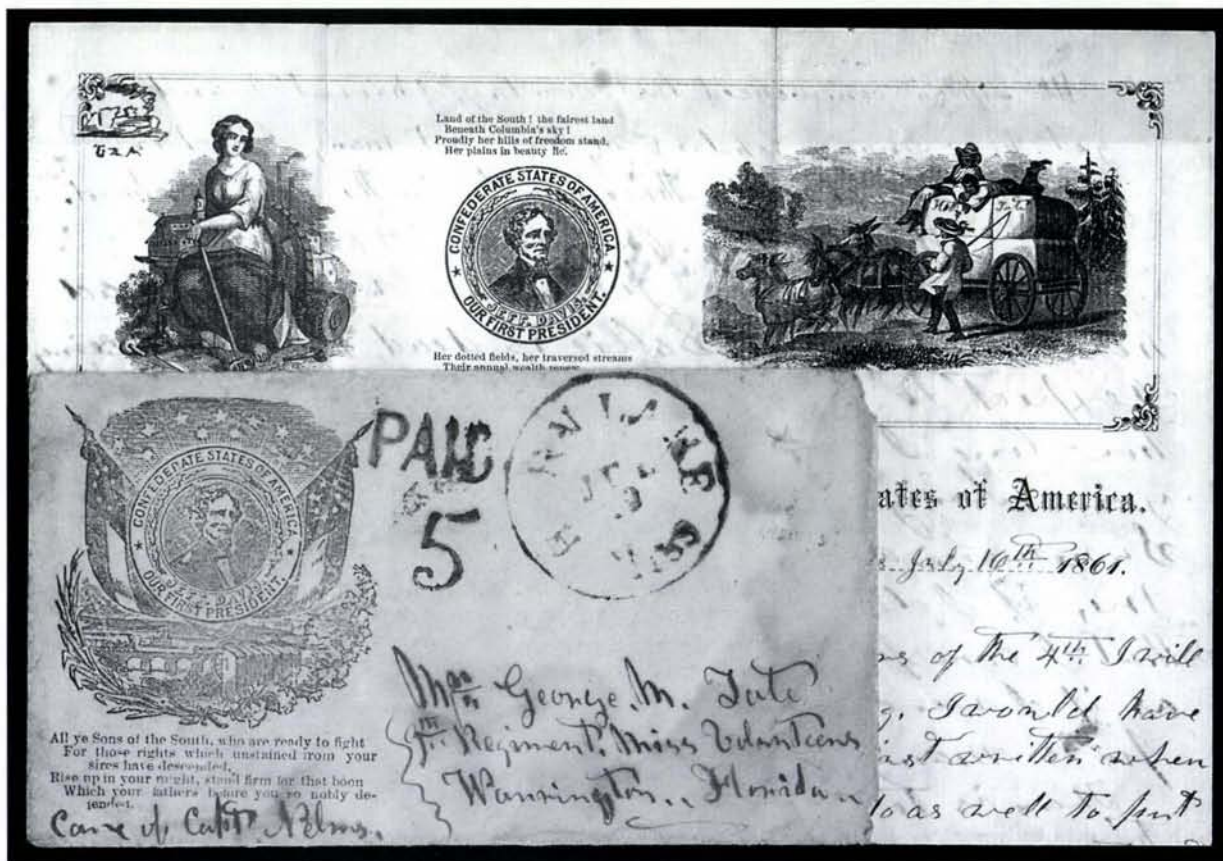 Land of the South ! the fairest land
Beneath Columbia's sky !
Proudly her hills of freedom stand,
Her plains in beauty lie.
CONFEDERATE STATES OF AMERICA.
JEFF. DAVIS.
OUR FIRST PRESIDENT.
Her dotted fields, her traversed streams
Their annual wealth renew
ates of America.
July 16th 1861.
of the 4th I will
I would have
written when
as well to put
PAID
5
CONFEDERATE STATES OF AMERICA.
JEFF. DAVIS.
OUR FIRST PRESIDENT.
All ye Sons of the South, who are ready to fight
For those rights which unstained from your
sires have descended,
Rise up in your might, stand firm for that boon
Which your fathers before you so nobly de-
fended.
Care of Capt Nelms.
George. M. Tate
Regiment. Miss Volunteers
Warrington, Florida